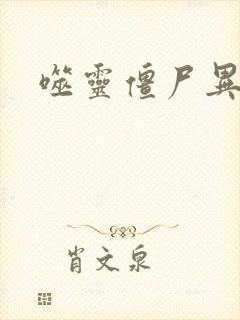 噬靈僵尸異
肖文泉